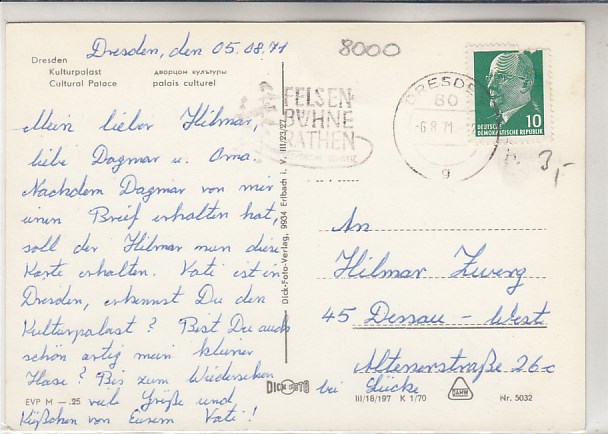 Dresden, den 05.08.71
8000
Dresden
Kulturpalast
дворцом культуры
Cultural Palace
palais culturel
Mein lieber Hilmar,
liebe Dagmar u. Oma.
Nachdem Dagmar von mir
einen Brief erhalten hat,
soll der Hilmar nun diese
Karte erhalten. Vati ist in
Dresden, erkennst Du den
Kulturpalast? Bist Du auch
schön artig mein kleiner
Hase? Bis zum Wiedersehen
viele Grüße und
Küßchen von Eurem Vati!
EVP M —.25
Dick-Foto-Verlag, 9934 Erlbach i. V. III/23/27
DICK FOTO
FELSEN-
BÜHNE
RATHEN
DRESDEN
80
-6.8.71
9
10
DEUTSCHE
DEMOKRATISCHE REPUBLIK
3,-
An
Hilmar Zwerg
45 Dessau - West
Altenerstraße 26c
bei Lücke
III/18/197 K 1/70
Nr. 5032